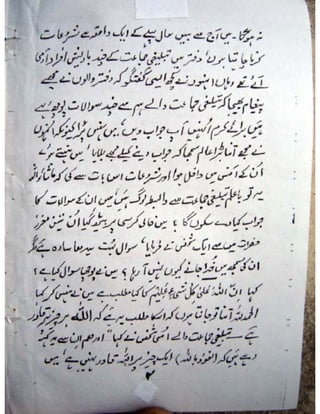 نہ ہوگا۔ میں آج سے بیس سال پہلے کے ایک واقعہ سے شروعات
کرنا چاہتا ہوں، دفتر میں تبلیغی جماعت کے چند باریش افراد آئے
آئے تھے وہاں انہوں نے کچھ ایسی گفتگو کی کہ دفتر والوں نے مجھے
پیغام بھیجا کہ تبلیغی جماعت والے ہم سے چند سوالات پوچھ رہے
ہیں برائے کرم انہیں آپ جواب دیں، میں ہنس پڑا کیونکہ انہوں
نے مجھے اتنا بڑا عالم سمجھا کہ جواب دینے کیلئے مجھے بلایا، میں ہنستے ہوئے
اُن کے آفس میں داخل ہوا اور شروعات اس بات سے کی کہ ماشاء اللہ
یہ تو باعلم تبلیغی جماعت سے وابستہ لوگ ہیں، میں ان کے سوالات کا
جواب کیا دے سکوں گا؟ میں خالی کرسی پر بیٹھ گیا اُن تین معزز
حضرات میں سے ایک شخص نے فرمایا، سوال بہت سیدھا سادہ ہے مگر
ان کی سمجھ میں خدا جانے کیوں نہیں آ رہا؟ میں نے پوچھا سوال کیا ہے؟
کہا اِنَّ اللہَ عَلٰی کُلِّ شَیْءٍ قَدِیْر کا کیا مطلب ہے میں نے ہنس کر کہا
الحمدللہ اتنا تو جانتا ہوں کہ اسکا مطلب یہ ہے کہ اللہ ہر چیز پر قادر
ہے۔ تبلیغی جماعت والے اُسی شخص نے کہا "اور ہم ان سے یہ کہہ
رہے ہیں کہ (نعوذ باللہ) ایک چیز پر اللہ قادر نہیں ہے، میں